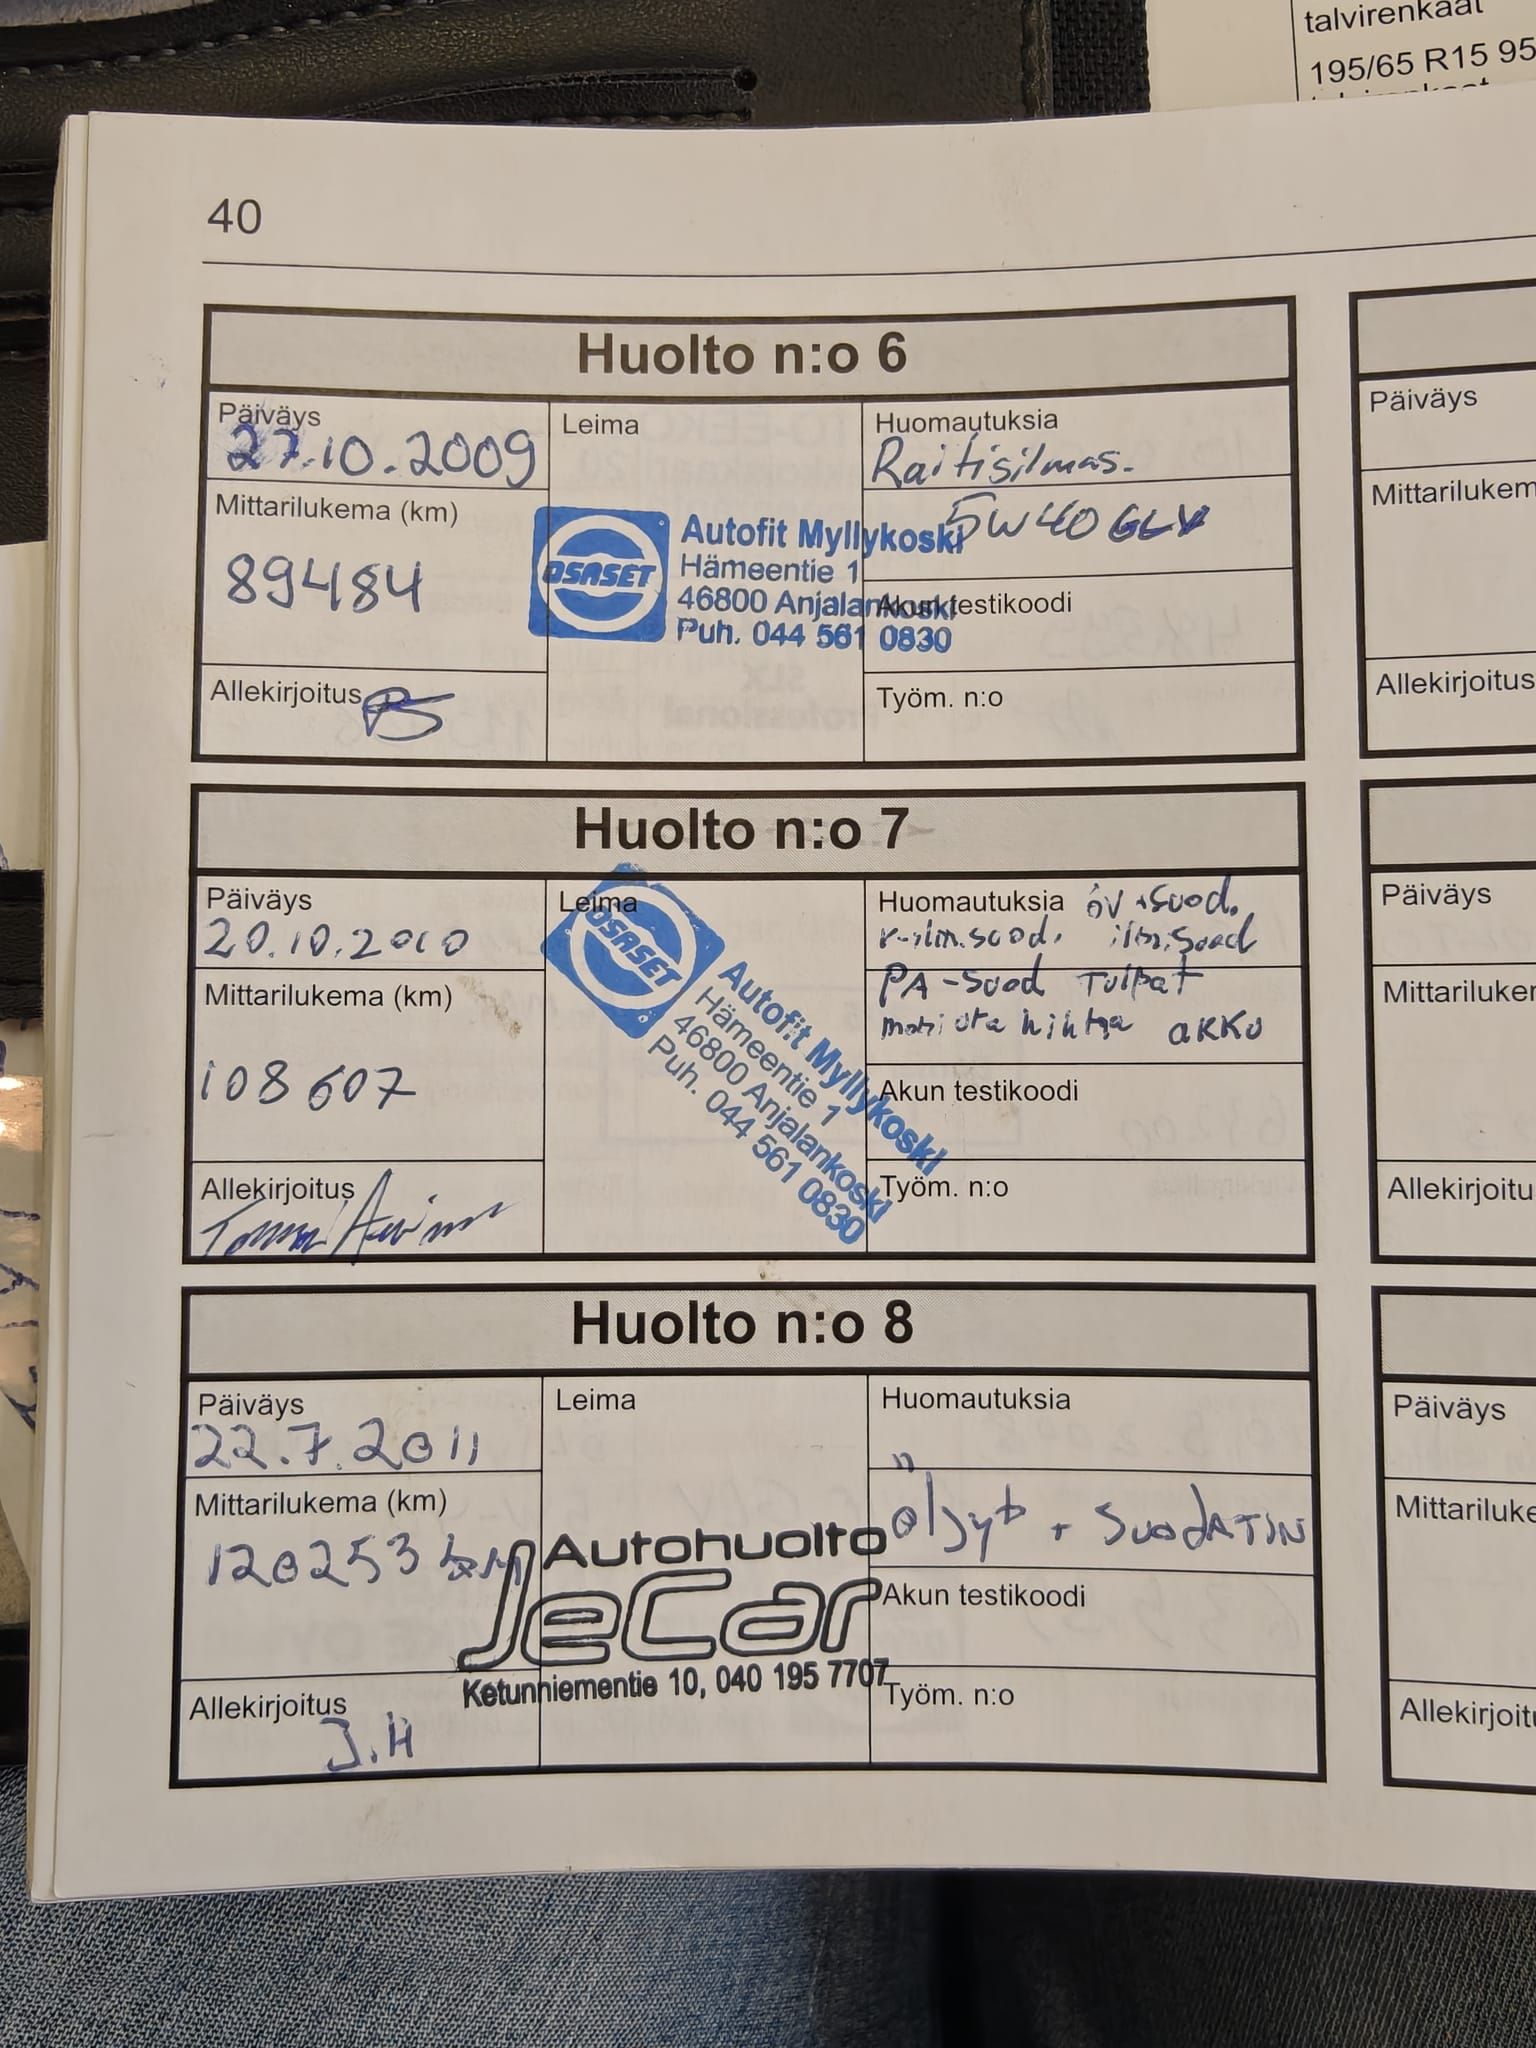 talvirenkaat
195/65 R15 95
40
Huolto n:o 6
Päiväys
27.10.2009
Mittarilukema (km)
89484
Allekirjoitus
Leima
OSASET
Autofit Myllykoski
Hämeentie 1
46800 Anjalankoski
Puh. 044 561 0830
Huomautuksia
Raitisilmas.
5W40
Akun testikoodi
Työm. n:o
Huolto n:o 7
Päiväys
20.10.2010
Mittarilukema (km)
108607
Allekirjoitus
Leima
OSASET
Autofit Myllykoski
Hämeentie 1
46800 Anjalankoski
Puh. 044 561 0830
Huomautuksia öv+suod.
r-ilm.suod. ilm.suod
PA-suod Tulpat
hihna akku
Akun testikoodi
Työm. n:o
Huolto n:o 8
Päiväys
22.7.2011
Mittarilukema (km)
120253 km
Allekirjoitus
J.H
Leima
Autohuolto
JeCar
Ketunniementie 10, 040 195 7707
Huomautuksia
Öljyt + SuodATIN
Akun testikoodi
Työm. n:o
Päiväys
Mittarilukem
Allekirjoitus
Päiväys
Mittariluker
Allekirjoitu
Päiväys
Mittariluke
Allekirjoit